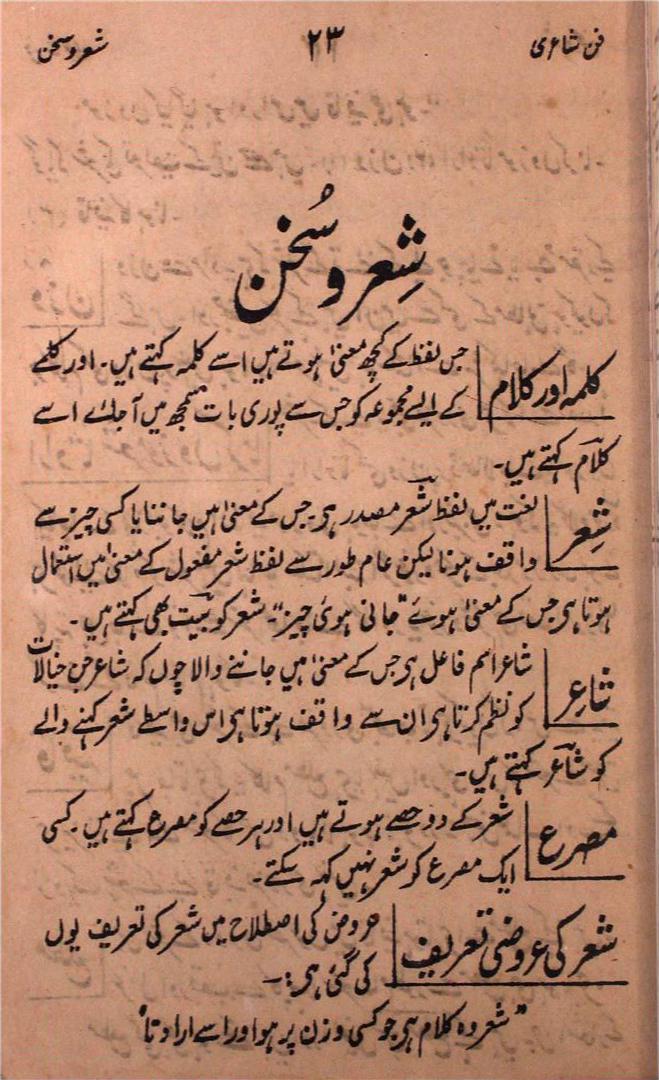 فن شاعری ۲۳ شعر و سخن
شِعر و سُخن
کلمہ اور کلام
جس لفظ کے کچھ معنیٰ ہوتے ہیں اسے کلمہ کہتے ہیں۔ اور کلمے
کے ایسے مجموعہ کو جس سے پوری بات سمجھ میں آ جائے اسے
کلام کہتے ہیں۔
شِعر
لغت میں لفظ شعر مصدر ہی۔ جس کے معنیٰ ہیں جاننا یا کسی چیز سے
واقف ہونا لیکن عام طور سے لفظ شعر مفعول کے معنیٰ میں استعمال
ہوتا ہی جس کے معنیٰ ہوئے "جانی ہوئی چیز"۔ شعر کو بیت بھی کہتے ہیں۔
شاعِر
شاعر اسم فاعل ہی جس کے معنیٰ ہیں جاننے والا چوں کہ شاعر جن خیالات
کو نظم کرتا ہی ان سے واقف ہوتا ہی اس واسطے شعر کہنے والے
کو شاعر کہتے ہیں۔
مصرع
شعر کے دو حصے ہوتے ہیں اور ہر حصے کو مصرع کہتے ہیں۔ کسی
ایک مصرع کو شعر نہیں کہہ سکتے۔
شعر کی عروضی تعریف
عروض کی اصطلاح میں شعر کی تعریف یوں
کی گئی ہی:۔
"شعر وہ کلام ہی جو کسی وزن پر ہو اور اسے ارادتا"